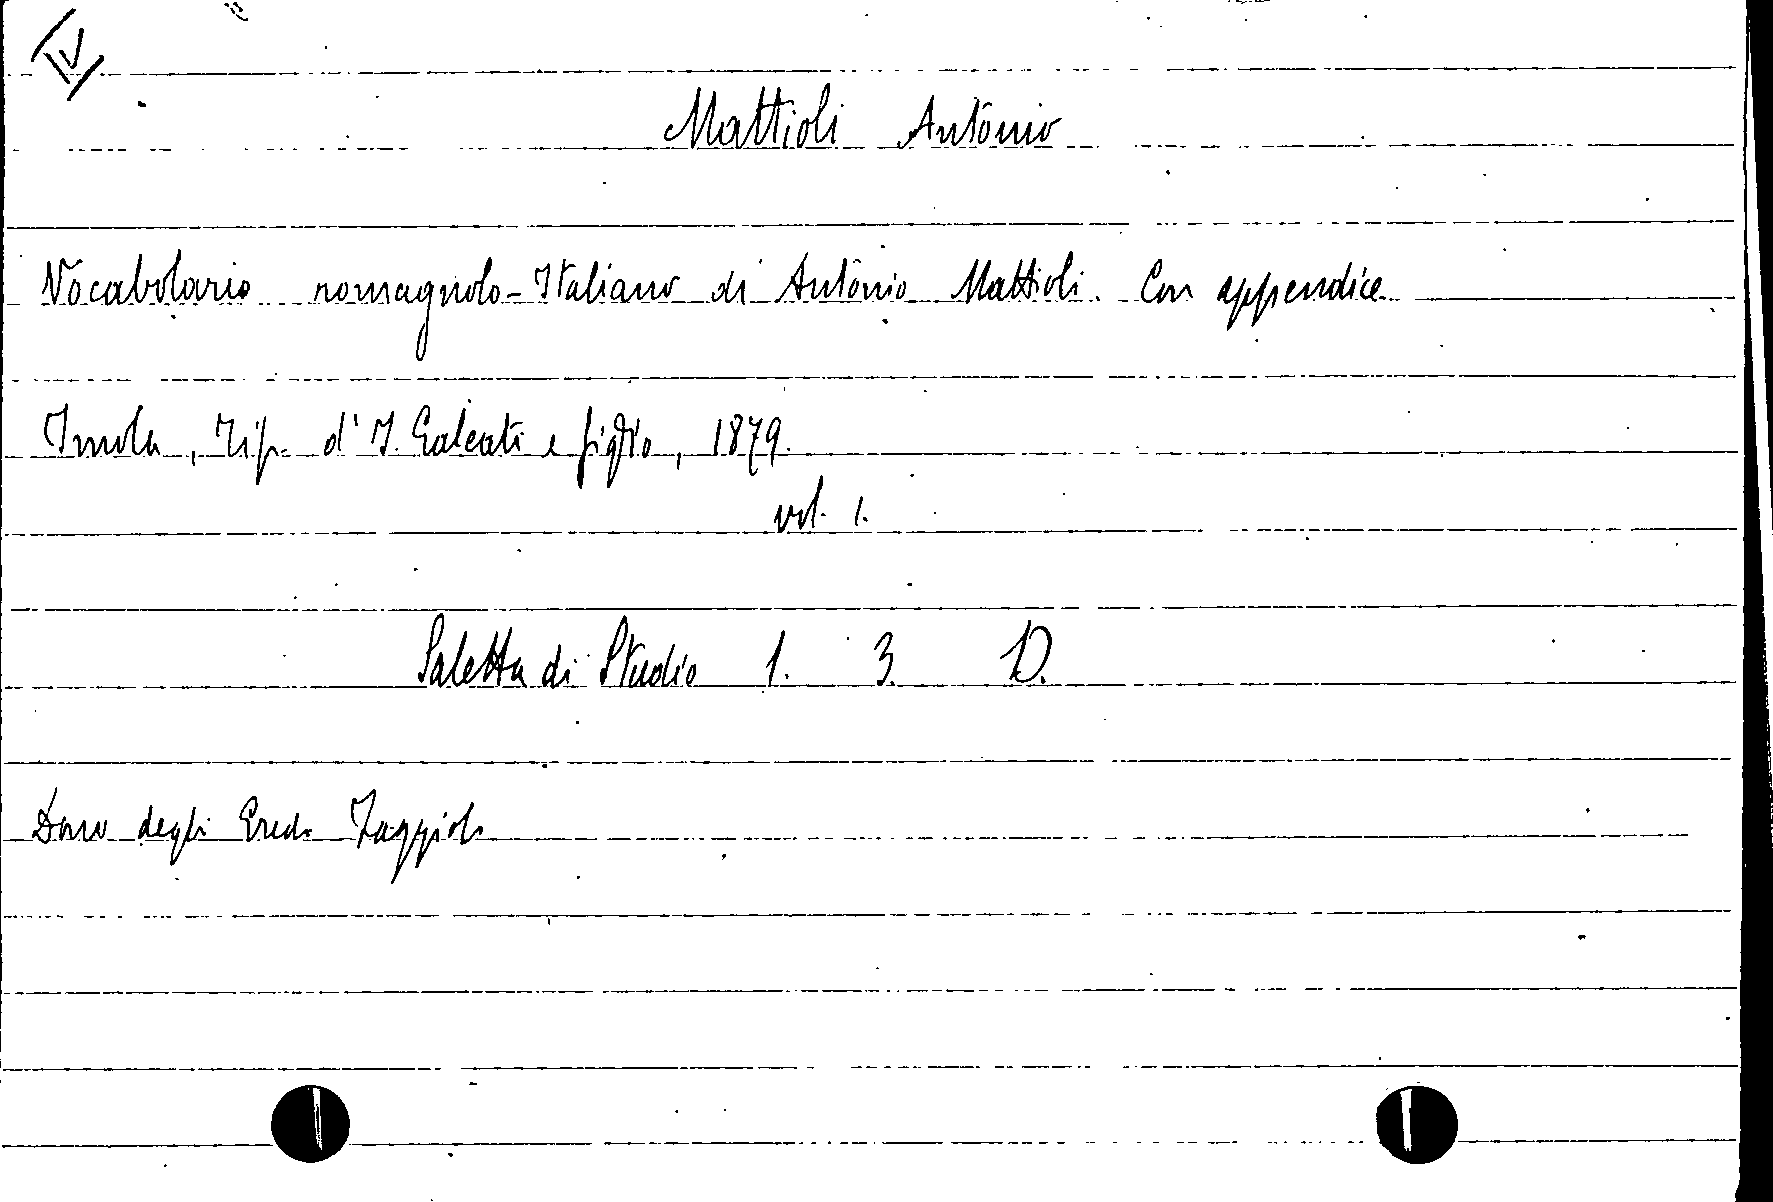 IV
Mattioli Antonio
Vocabolario romagnolo-Italiano di Antonio Mattioli. Con appendice
Imola, Tip. d'I. Galeati e figlio, 1879.
vol. 1.
Saletta di Studio 1. 3. D.
Dono degli Eredi